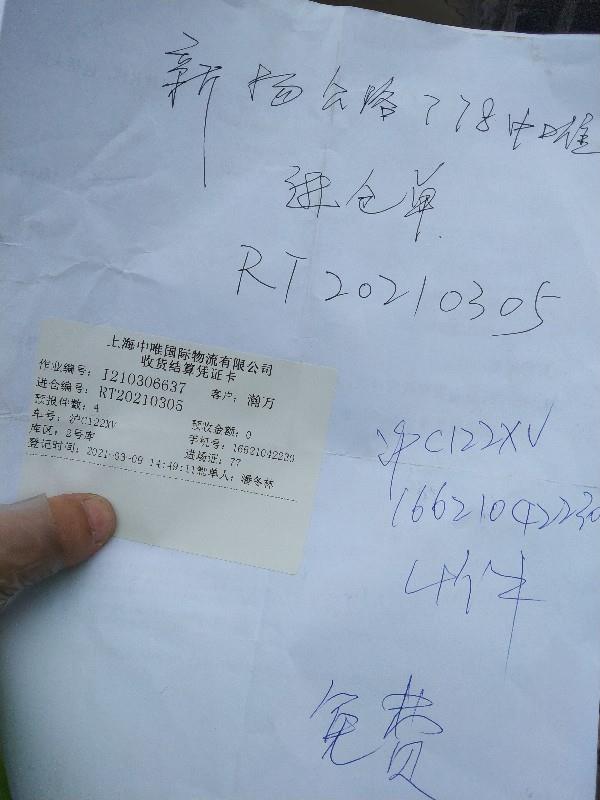 新场公路778中唯
进仓单
RT20210305
上海中唯国际物流有限公司
收货结算凭证卡
作业编号: I210306637 客户: 瀚万
进仓编号: RT20210305
预报件数: 4 预收金额: 0
车号: 沪C122XV 手机号: 16621042230
库区: 2号库 进场证: 77
登记时间: 2021-03-09 14:49:11 制单人: 潘冬林
沪C122XV
16621042230
4件
免费